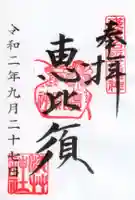 奉拝
恵比須
令和二年九月二十七日